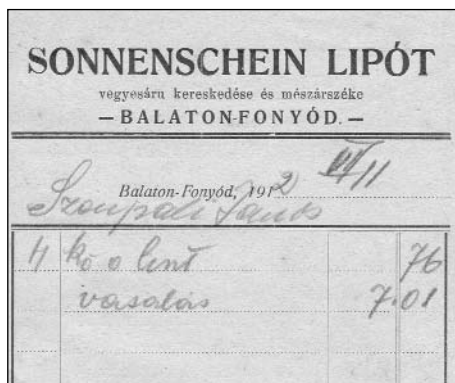 SONNENSCHEIN LIPÓT
vegyesáru kereskedése és mészárszéke
— BALATON-FONYÓD. —
Balaton-Fonyód, 1912 VI/11
János
4 kó o lent 76
vasalás 7.01